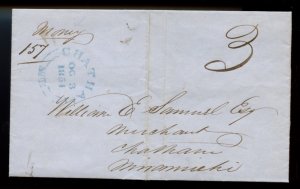 Money
157
3
CHATHA
OC 3
1851
William E Samuel Esq
Merchant
Chatham
Miramichi